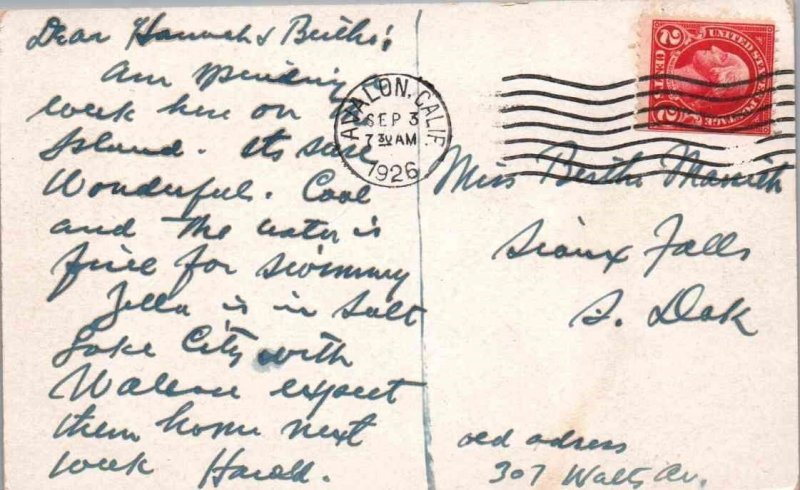 Dear Hannah & Bertha:
Am spending
week here on
Island. its sure
Wonderful. Cool
and the water is
fine for swimming
Zella is in Salt
Lake City with
expect
them home next
week Harold.
AVALON, CALIF.
SEP 3
7 30 AM
1926
UNITED STATES POSTAGE
2 CENTS 2
Miss Bertha
Sioux Falls
S. Dak
old adress
307 Walts Av.